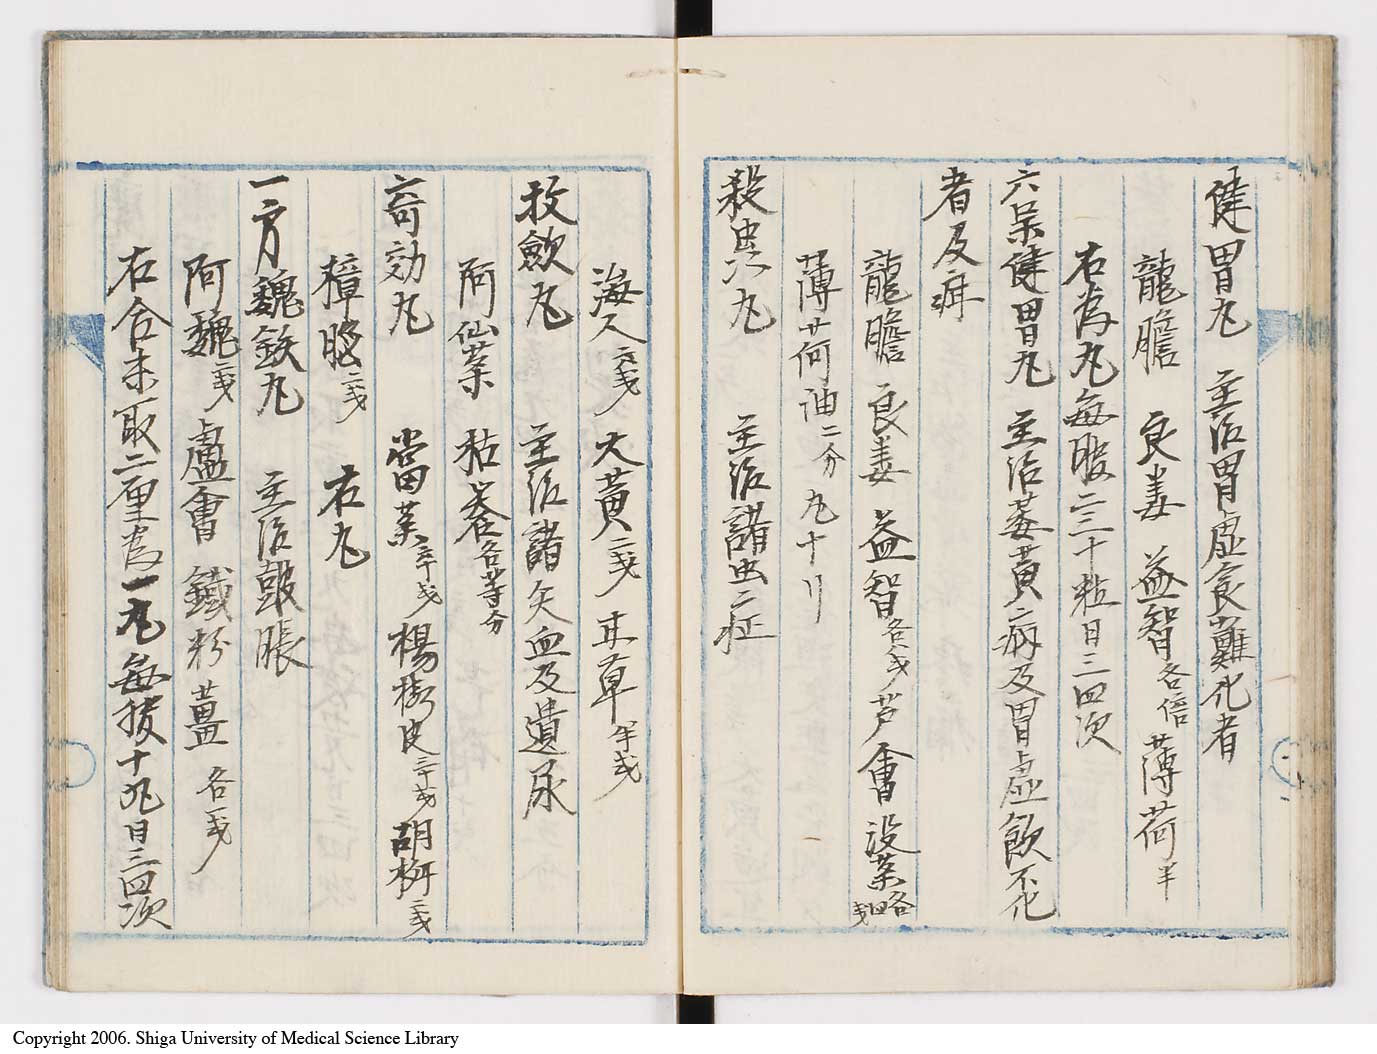 健胃丸 主治胃虚食難化者
龍膽 良姜 益智各信 薄荷半
右為丸每服二三十粒日三四次
六味健胃丸 主治萎黄病及胃虚飲不化
者及痳
龍膽 良姜 益智各戋 芦會 没薬各四戋
薄荷油二分 丸十
殺虫丸 主治諸虫症
海人二戋 大黄二戋 甘草半戋
收歛丸 主治諸失血及遺尿
阿仙薬 枯礬各等分
奇効丸
樟脳二戋 當薬六十戋 楊梅皮三十戋 胡椒二戋
右丸
一方魏鉄丸 主治皷脹
阿魏二戋 盧會 鐵粉 薑 各一戋
右合末取二厘為一丸每服十丸日三四次
Copyright 2006. Shiga University of Medical Science Library